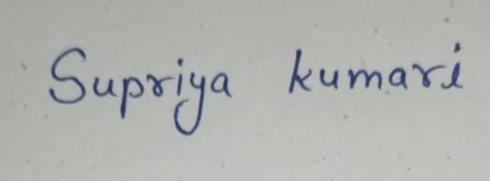 Supriya kumari